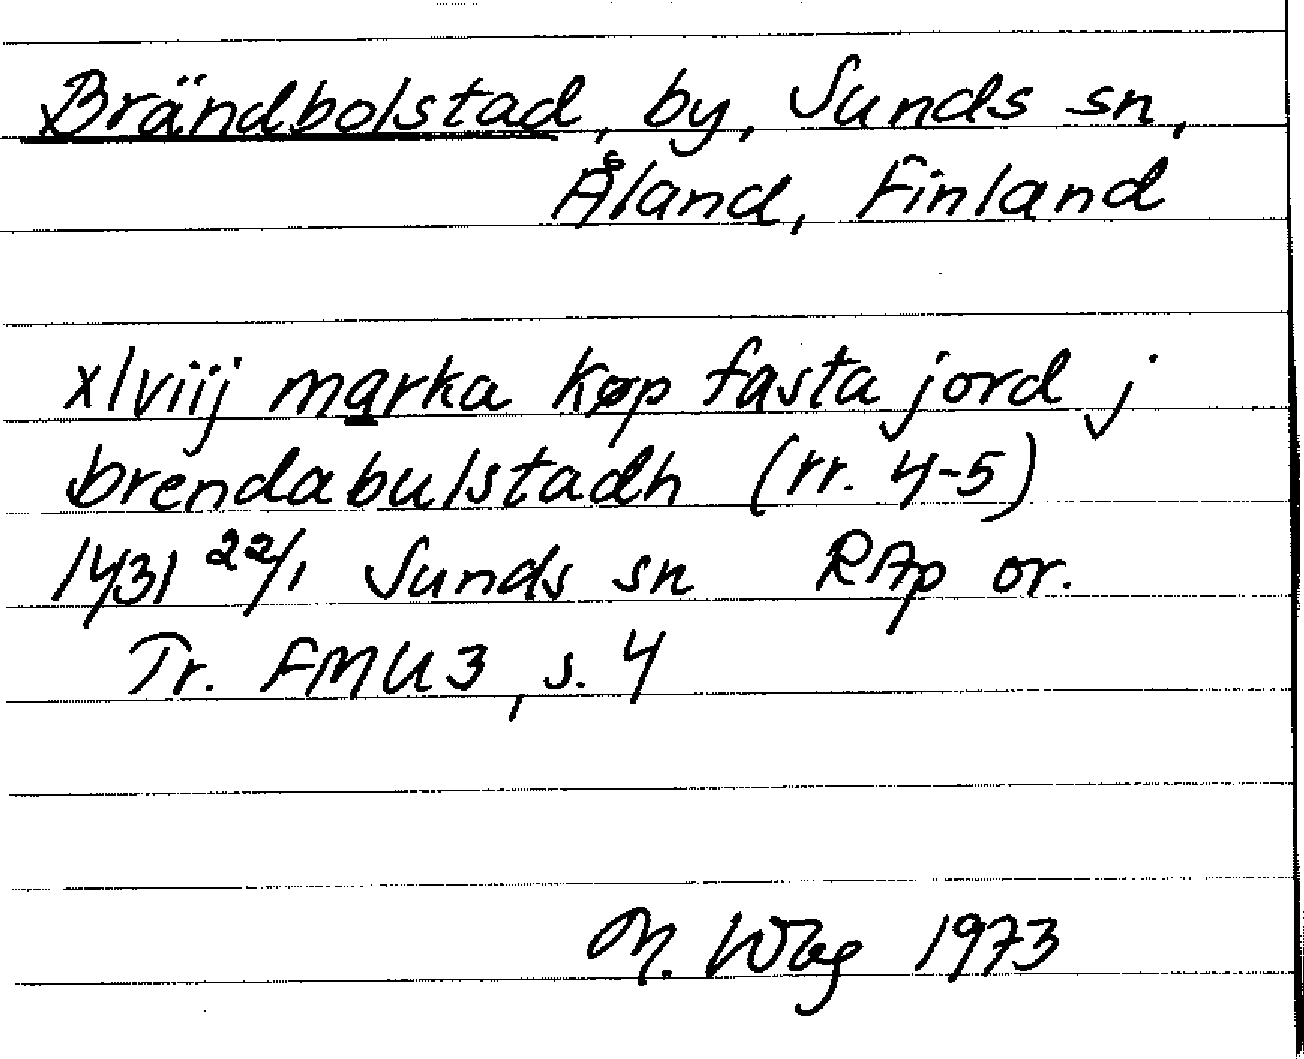 Brändbolstad, by, Sunds sn,
Åland, Finland
xlviij marka køp fasta jord j
brendabulstadh (rr. 4-5)
1431 22/1 Sunds sn RAp or.
Tr. FMU 3, s. 4
M. Wbg 1973